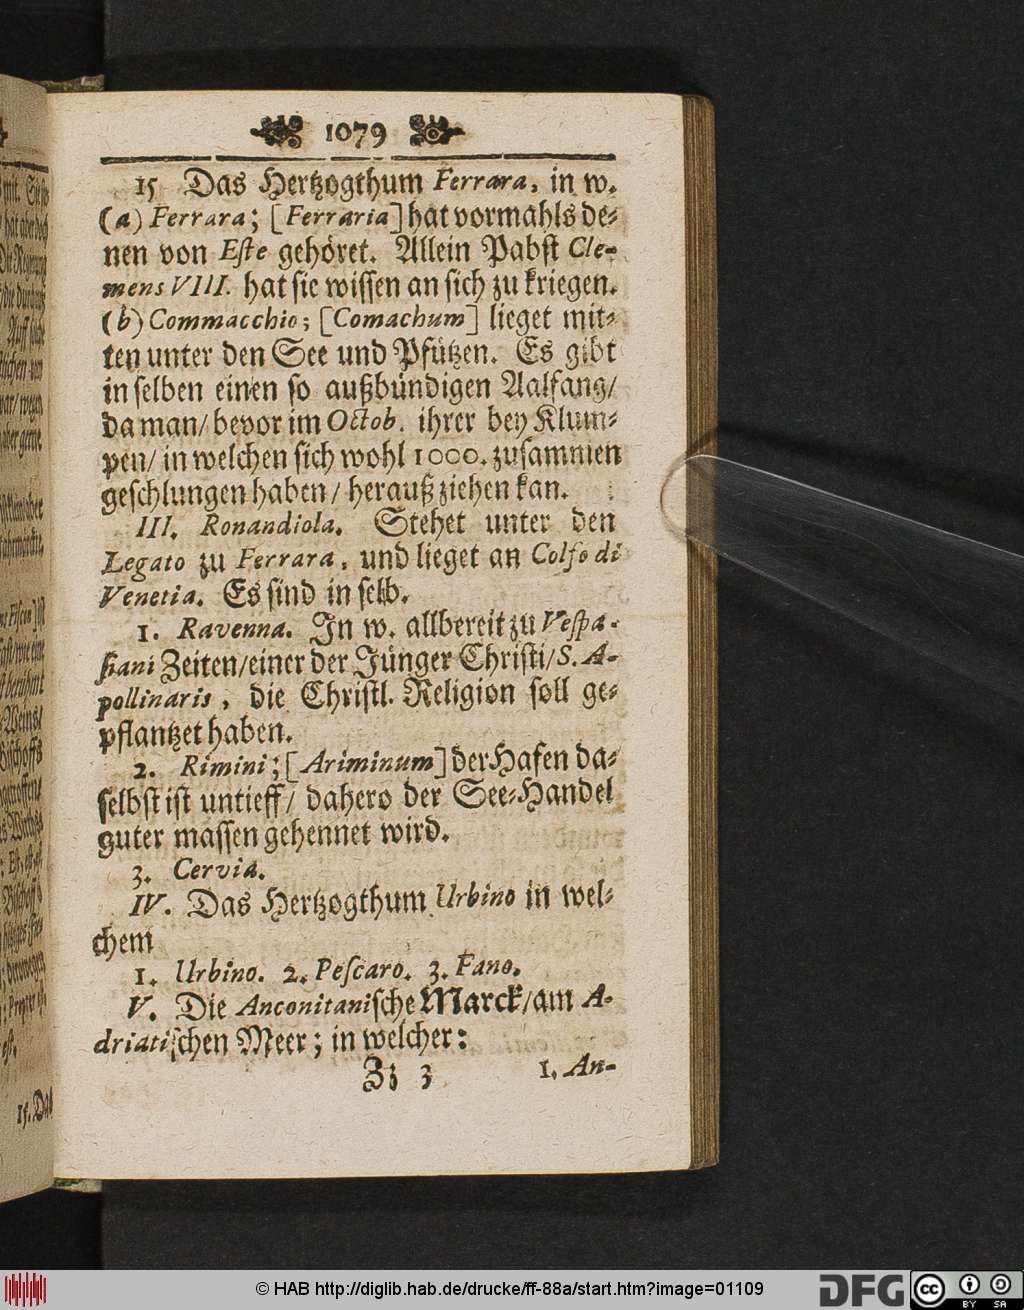 1079
15 Das Hertzogthum Ferrara, in w.
(a) Ferrara; [Ferraria] hat vormahls de-
nen von Este gehöret. Allein Pabst Cle-
mens VIII. hat sie wissen an sich zu kriegen.
(b) Commacchio; [Comachum] lieget mit-
ten unter den See und Pfützen. Es gibt
in selben einen so außbündigen Aalfang/
da man/ bevor im Octob. ihrer bey Klum-
pen/ in welchen sich wohl 1000. zusammen
geschlungen haben/ herauß ziehen kan.
III. Ronandiola. Stehet unter den
Legato zu Ferrara, und lieget an Colfo di
Venetia. Es sind in selb.
1. Ravenna. In w. allbereit zu Vespa-
siani Zeiten/ einer der Jünger Christi/ S. A-
pollinaris, die Christl. Religion soll ge-
pflantzet haben.
2. Rimini; [Ariminum] der Hafen da-
selbst ist untieff/ dahero der See-Handel
guter massen gehennet wird.
3. Cervia.
IV. Das Hertzogthum Urbino in wel-
chem
1. Urbino. 2. Pescaro. 3. Fano.
V. Die Anconitanische Marck/ am A-
driatischen Meer; in welcher:
Zz 3 1. An-
15. Das
© HAB http://diglib.hab.de/drucke/ff-88a/start.htm?image=01109
DFG
cc BY SA